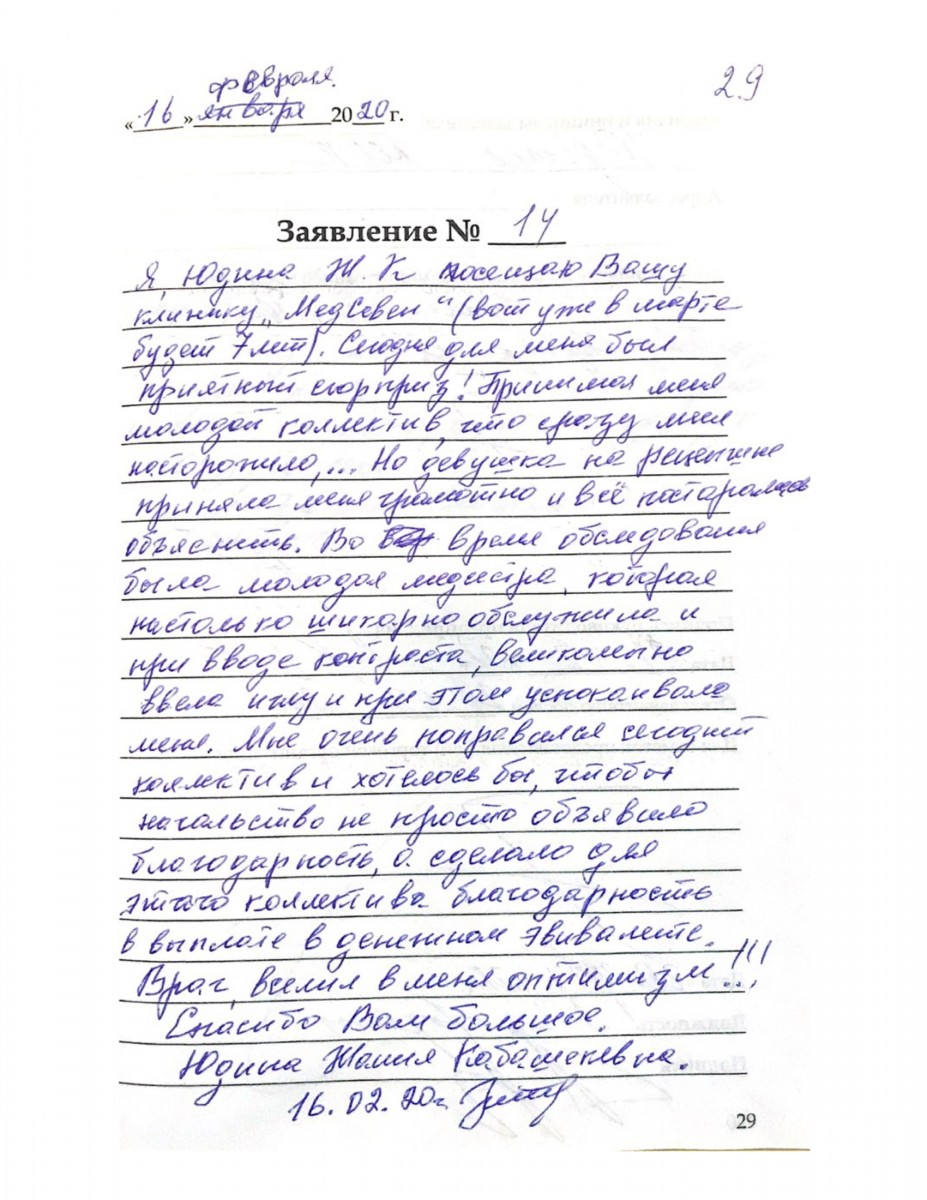 29
февраля
«16» января 2020 г.
Заявление № 14
Я, Юдина Ж. К посещаю Вашу
клинику „МедСевен“ (вот уже в марте
будет 7 лет). Сегодня для меня был
приятный сюрприз! Принимал меня
молодой коллектив, что сразу меня
насторожило,... Но девушка на рецепшене
приняла меня грамотно и всё постаралась
объяснить. Во время обследования
была молодая медсестра, которая
настолько шикарно обслужила и
при вводе контраста, великолепно
ввела иглу и при этом успокаивала
меня. Мне очень понравился сегодня
коллектив и хотелось бы, чтобы
начальство не просто объявило
благодарность, а сделало для
этого коллектива благодарность
в выплате в денежном эквиваленте.
Врач, вселил в меня оптимизм...!!!
Спасибо Вам большое.
Юдина
16.02.20г
29